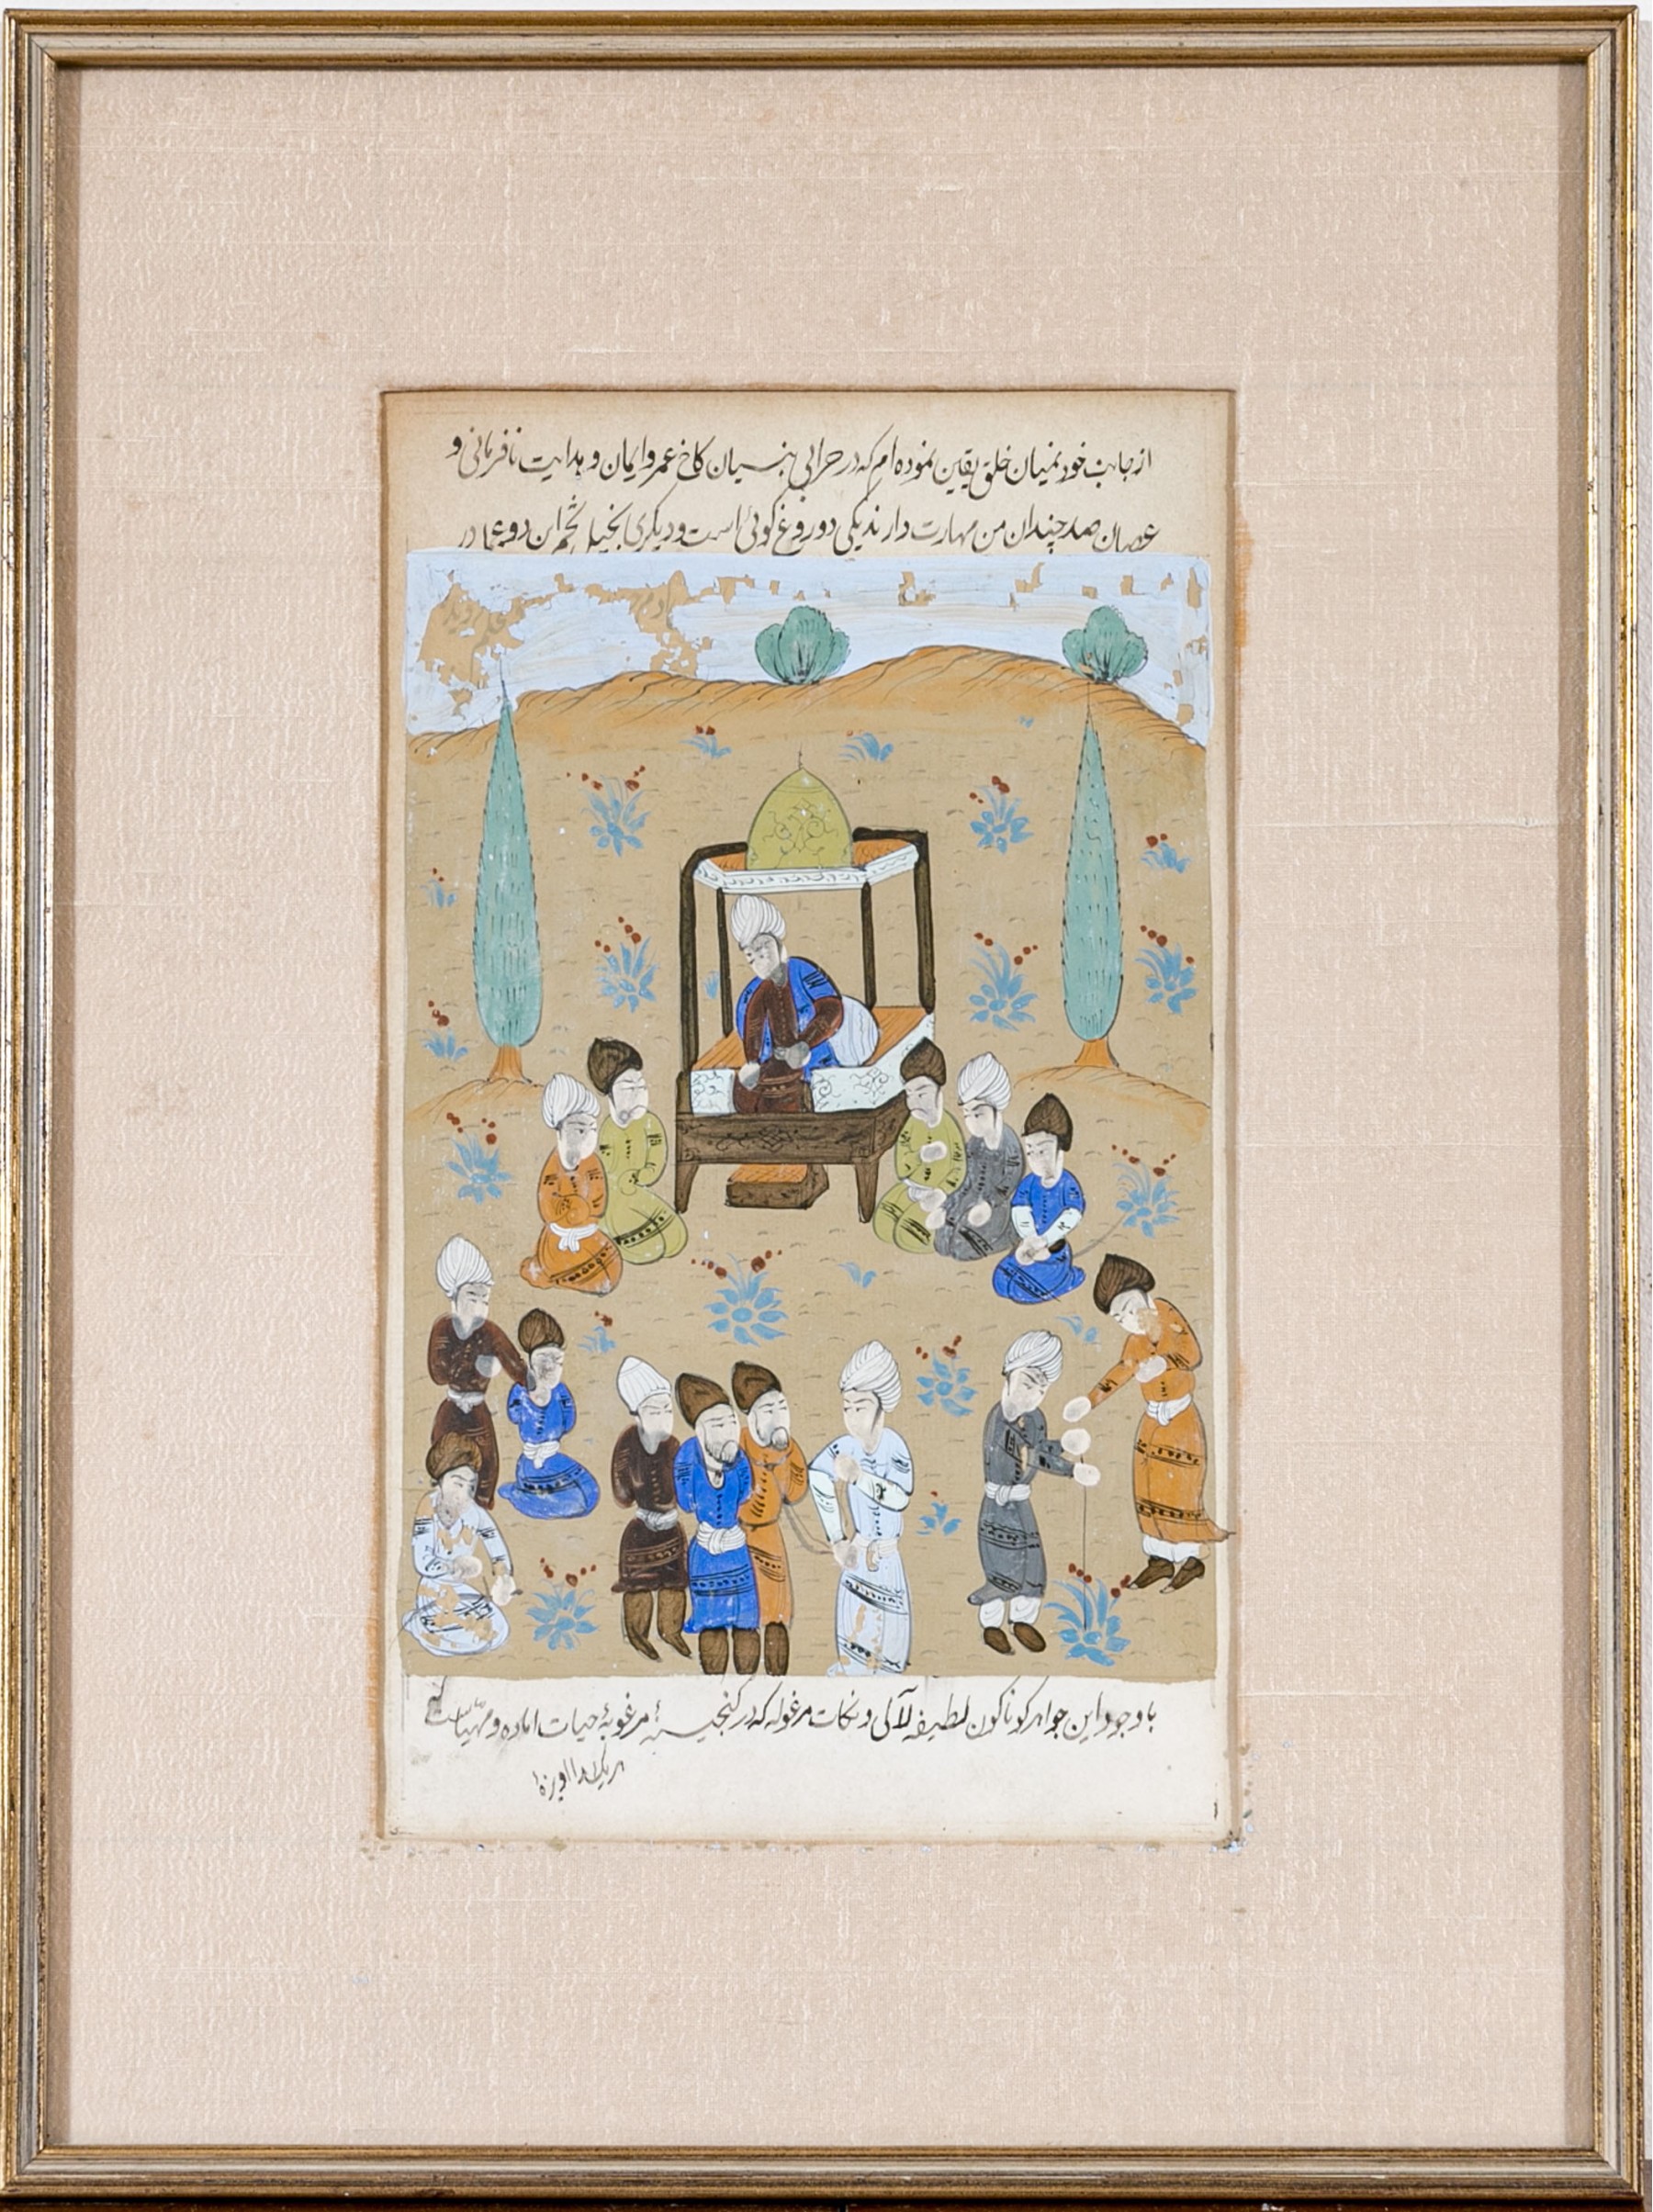 از جانب خود نمیان خلق یقین نموده‌ام که در خرابی بنیان کاخ عمر و ایمان و هدایت نافرمانی و
عصیان صد چندان من مهارت دارند یکی دوروغ گوئی است و دیگری بخیل این دو
با وجود این جواهر کوناکون لطیفه لآلی و نکات مرغوله که در کنجینهٔ مرغوبهٔ حیات اماده و مهیاست